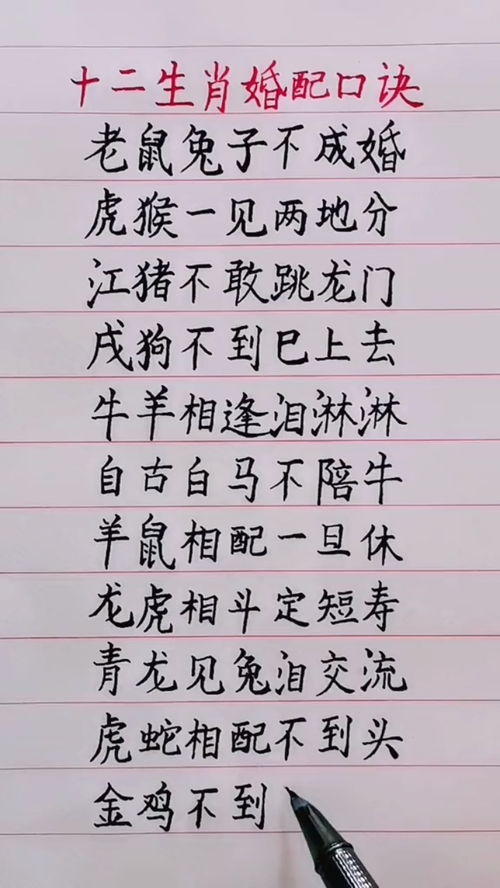 十二生肖婚配口诀
老鼠兔子不成婚
虎猴一见两地分
江猪不敢跳龙门
戌狗不到巳上去
牛羊相逢泪淋淋
自古白马不陪牛
羊鼠相配一旦休
龙虎相斗定短寿
青龙见兔泪交流
虎蛇相配不到头
金鸡不到